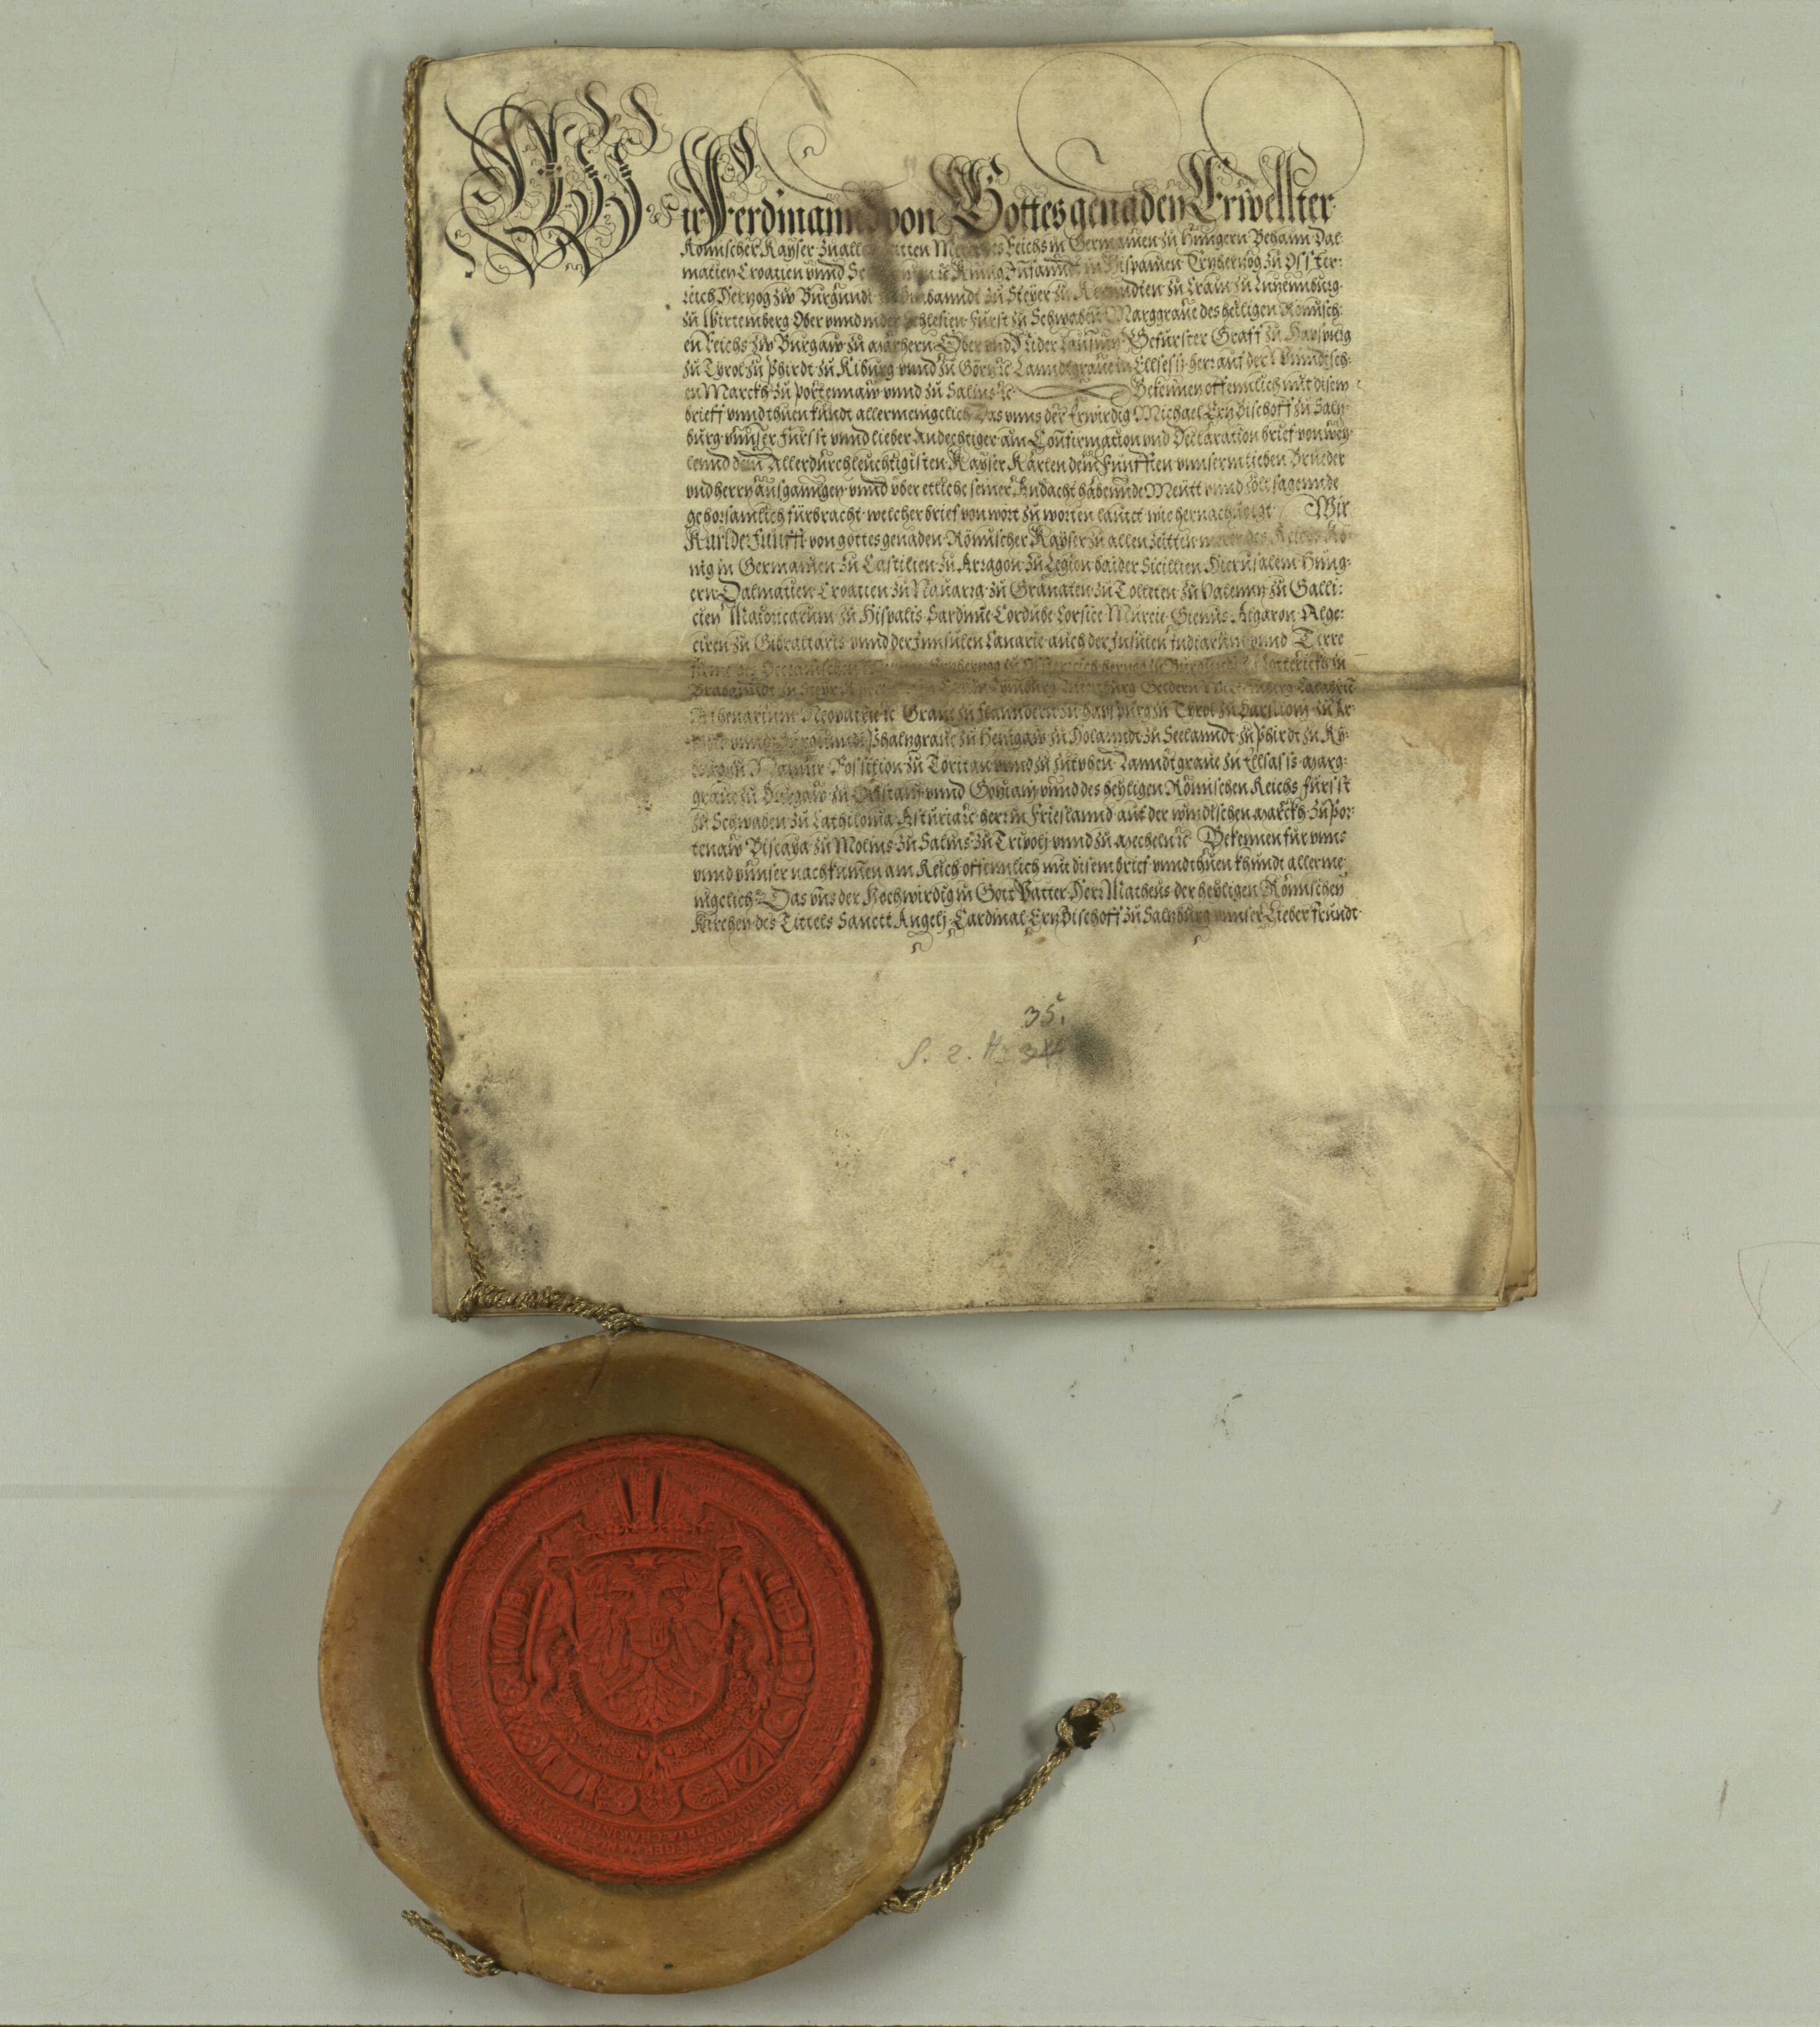 Wir Ferdinannd von Gottes genaden Erwellter
Römischer Kayser zu allen zeitten Merer des Reichs in Germanien zu Hungern Behaim Dal-
matien Croatien vnnd Sc Künig Innfannt in Hispanien Ertzherzog zu Osster:
reich Herzog zw Burgundi zu Brabanndt zu Steyer zu Kerndten zu Crain zu Lutzennburg
zu Wirtemberg Ober vnnd nider Schlesien Furst zu Schwaben Marggraue des heiligen Römisch-
en Reichs zw Burgaw zu Märhern Ober vnd Nider Lausnitz Gefürster Graff zu Hapspurg
zu Tyrol zu Phirdt zu Kiburg vnnd zu Görtz ꝛc Lanndtgraue in Ellsess herr auf der Winndisch-
en Marckh zu Portennaw vnnd zu Salins ꝛc Bekennen offennlich mit disem
brieff vnnd thuen kundt allermenigclich Das vnns der Erwirdig Michael Ertzbischoff zu Saltz-
burg vnnser Fürsst vnnd lieber Andechtiger ain Confirmation vnd Declaration brief von wey-
lennd dem Allerdurchleuchtigisten Kayser Karlen dem Fünfften vnnserm lieben Brueder
vnd herrn ausganngen vnnd vber ettliche seiner Andacht habennde Meütt vnnd
gehorsamlich fürbracht welcher brief von wort zu worten lautet wie hernachuolgt Wir
Karl der Fünfft von gottes genaden Römischer Kayser zu allen zeitten merer des Reichs Kü-
nig in Germanien zu Castilien zu Arragon zu Legion baider Sicillien Hierusalem Hung-
ern Dalmatien Croatien zu Nauarra zu Granaten zu Tolleten zu Valentz zu Galli:
cien Maioricarum zu Hispalis Sardinie Cordube Corsice Murcie Gienis Algaron Alge:
ciren zu Gibraltaris vnnd der Innsulen Canarie auch der Insulen Indiarum vnnd Terre
firme des Oceanischen Ertzherzog zu Osterreich herzog zu Burgundi zu Lotterickh in
Brabanndt zu Steyr Limburg Lutzenburg Geldern Wirtemberg Calabrie
Athenarum Neopatrie ꝛc Graue zu Flanndern zu Hapspurg zu Tyrol zu Barsiloni zu Ar-
vnnd Burgundi Phaltzgraue zu Henigaw zu Holanndt zu Seelanndt zu Phirdt zu Ky-
burg zu Namur Rossilion zu Ceritan vnnd zu Zutphen Lanndtgraue zu Ellsass Marg:
graue zu Burgaw zu Oristani vnnd Gotziani vnnd des heyligen Römischen Reichs fürsst
zu Schwaben zu Cathilonia Asturia ꝛc herr in Frieslannd auf der windischen Marckh zu Por-
tenaw Biscaya zu Molins zu Salins zu Tripoly vnnd zu Mecheln ꝛc Bekennen für vnns
vnnd vnnser nachkumen am Reich offennlich mit disem brief vnnd thuen khundt allerme-
nigclich Das vns der Hochwirdig in Gott Vatter Herr Matheus der heyligen Römischen
Kirchen des Tittels Sancti Angeli Cardinal Ertzbischoff zu Saltzburg vnnser Lieber freundt
35.
S. 2. N. 34